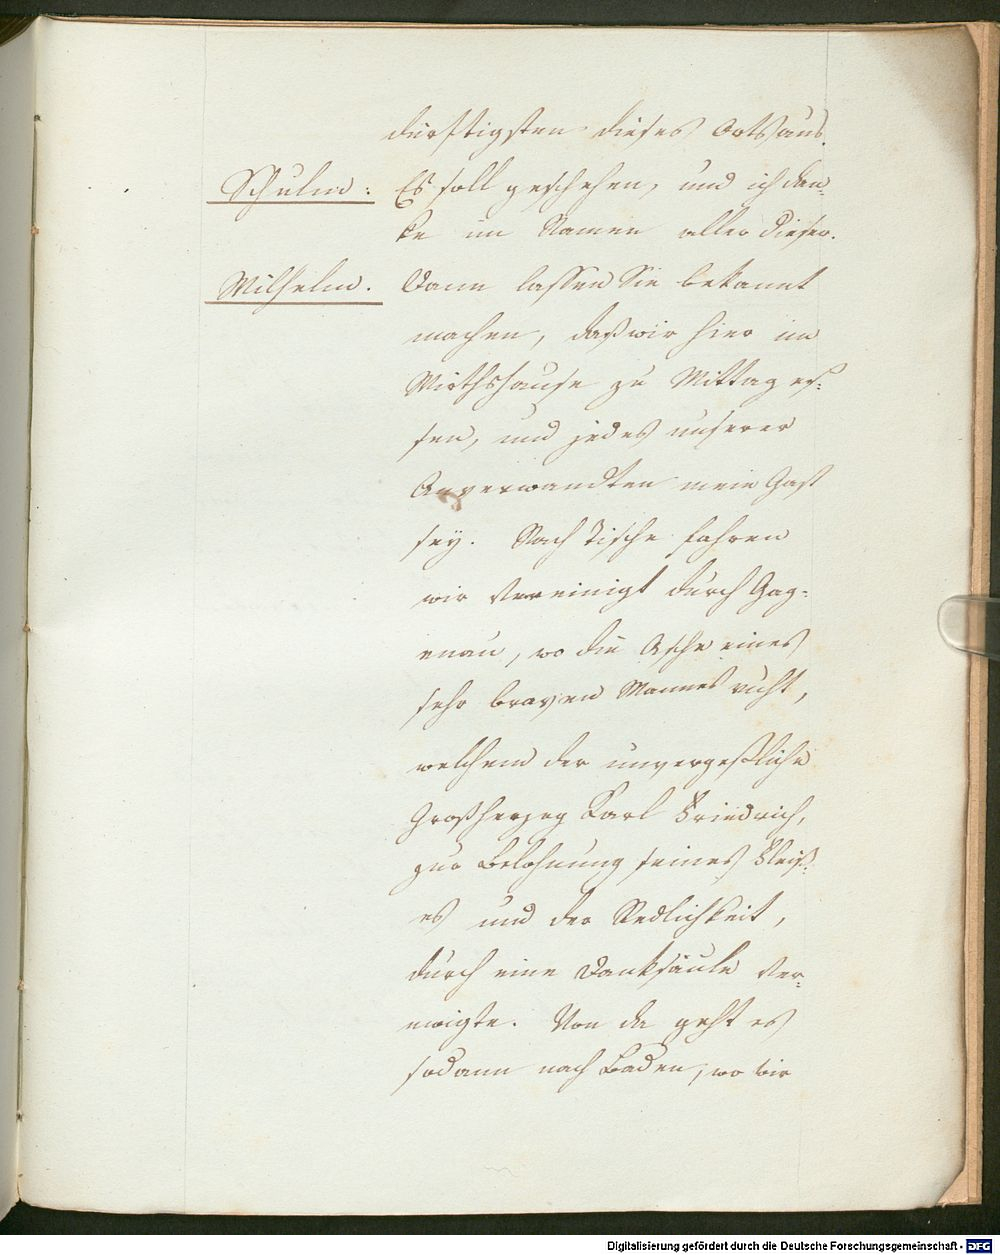 dürftigsten dieses Orts aus.
Schulm: Es soll geschehen, und ich dan-
ke im Namen aller dieser.
Wilhelm. Dann lassen Sie bekannt
machen, daß wir hier im
Wirthshause zu Mittag es-
sen, und jedes unserer
Anverwandten mein Gast
sey. Nach Tische fahren
wir vereinigt durch Gag-
enau, wo die Asche eines
sehr braven Mannes ruht,
welchem der unvergeßliche
Großherzog Karl Friedrich,
zur Belohnung seines Fleiß-
es und der Redlichkeit,
durch eine Danksäule ver-
ewigte. Von da geht es
sodann nach Baden, wo wir
Digitalisierung gefördert durch die Deutsche Forschungsgemeinschaft - DFG